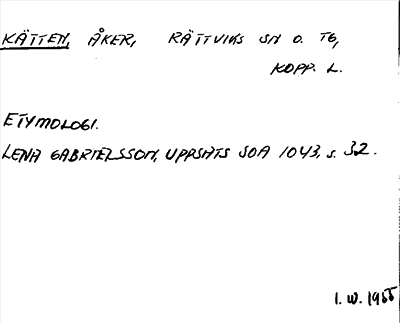 KÄTTEN, ÅKER, RÄTTVIKS SN O. TG,
KOPP. L.
ETYMOLOGI.
LENA GABRIELSSON, UPPSATS SOA 1043, s. 32.
I. W. 1955